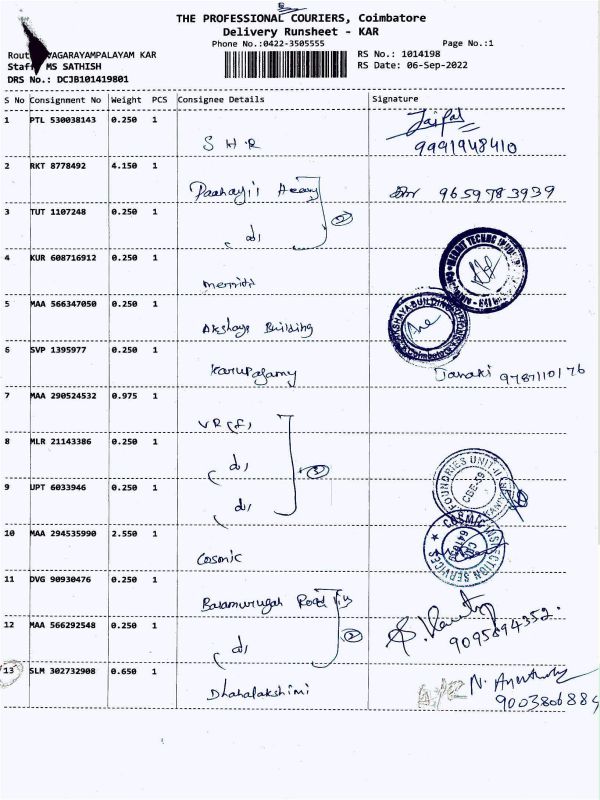 THE PROFESSIONAL COURIERS, Coimbatore
Delivery Runsheet - KAR
Phone No.:0422-3505555 Page No.:1
Rout VAGARAYAMPALAYAM KAR RS No.: 1014198
Staf MS SATHISH RS Date: 06-Sep-2022
DRS No.: DCJB101419801
S No Consignment No Weight PCS Consignee Details Signature
1 PTL 530038143 0.250 1
S H R 9991948410
2 RKT 8778492 4.150 1
9659783939
3 TUT 1107248 0.250 1
(d) 2
4 KUR 608716912 0.250 1
merritt
5 MAA 566347050 0.250 1
Akshaya Building
6 SVP 1395977 0.250 1
Karupasamy Janaki 9787110176
7 MAA 290524532 0.975 1
VR (F)
8 MLR 21143386 0.250 1
(d) 3
9 UPT 6033946 0.250 1
FOUNDRIES UNIT-II
(d)
10 MAA 294535990 2.550 1
Cosmic COSMIC INSPECTION SERVICES
11 DVG 90930476 0.250 1
12 MAA 566292548 0.250 1
(d) 2 9095694352.
13 SLM 302732908 0.650 1
Dhanalakshimi 9003806884